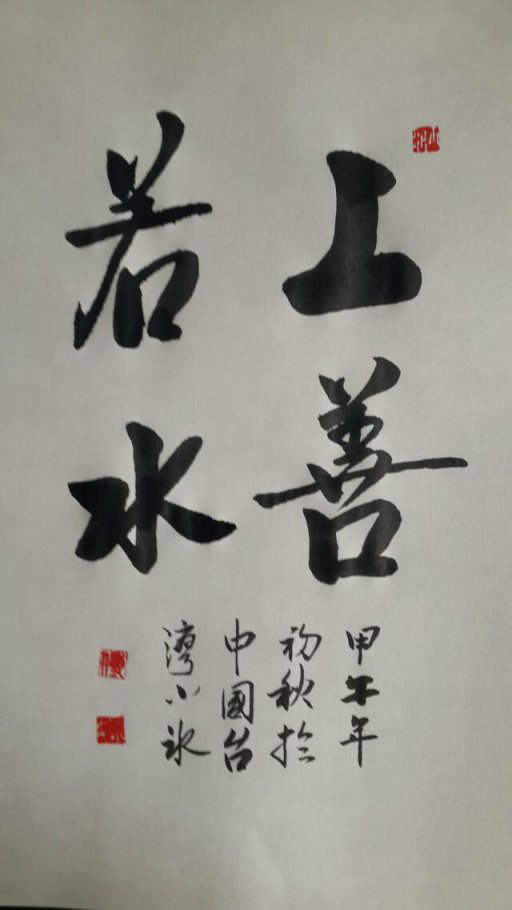 上善
若水
甲午年
初秋於
中國台
灣小冰